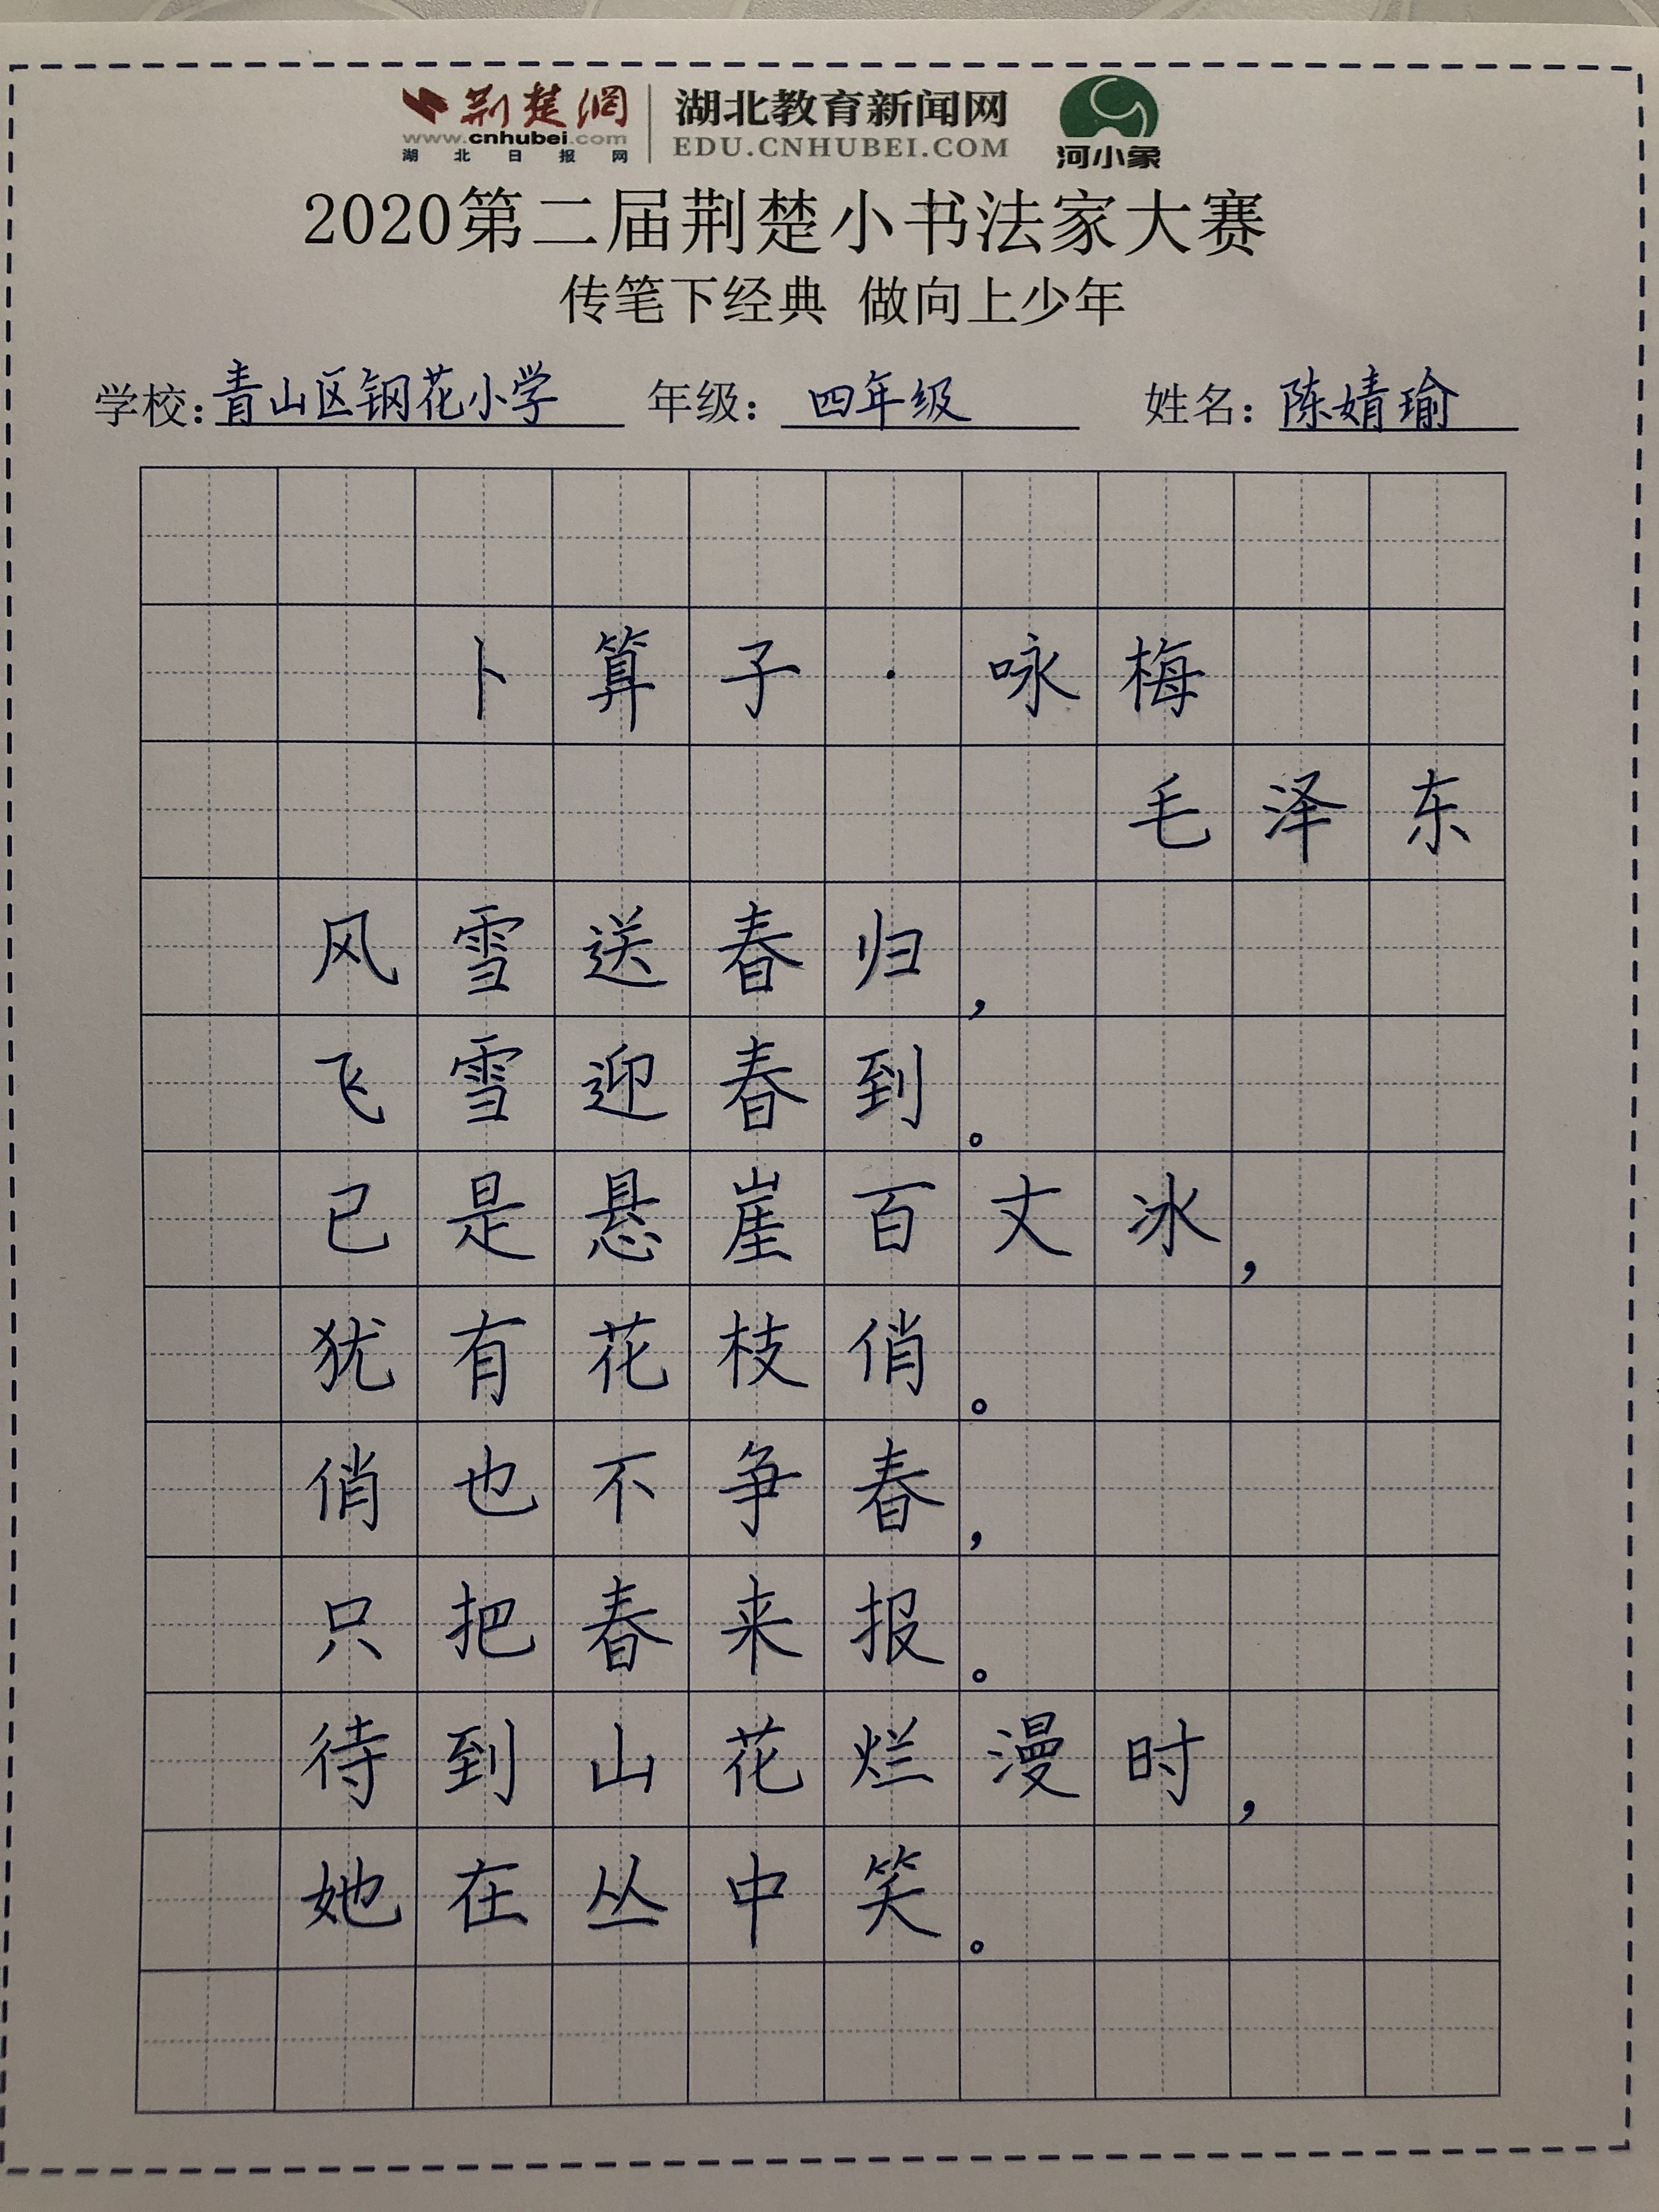 荆楚网 湖北教育新闻网
www.cnhubei.com EDU.CNHUBEI.COM
湖北日报网 河小象
2020第二届荆楚小书法家大赛
传笔下经典 做向上少年
学校:青山区钢花小学 年级:四年级 姓名:陈婧瑜
卜算子·咏梅
毛泽东
风雪送春归,
飞雪迎春到。
已是悬崖百丈冰,
犹有花枝俏。
俏也不争春,
只把春来报。
待到山花烂漫时,
她在丛中笑。